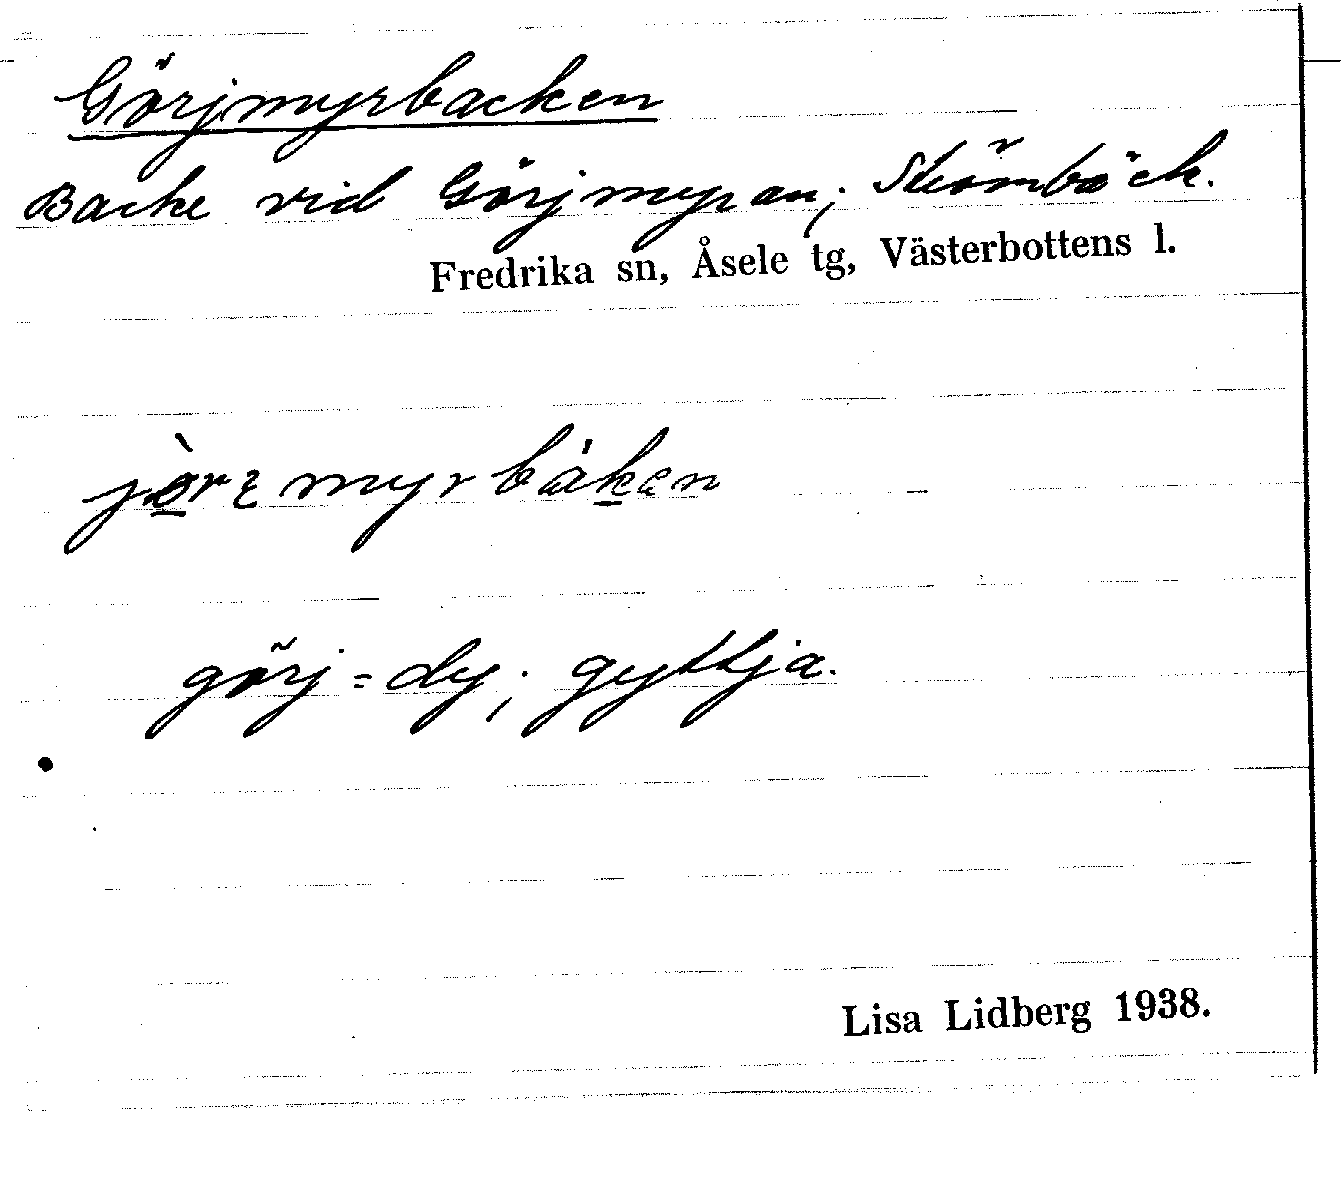 Görjmyrbacken
Backe vid Görjmyran; Skönböck.
Fredrika sn, Åsele tg, Västerbottens l.
görj = dy; gyttja.
Lisa Lidberg 1938.